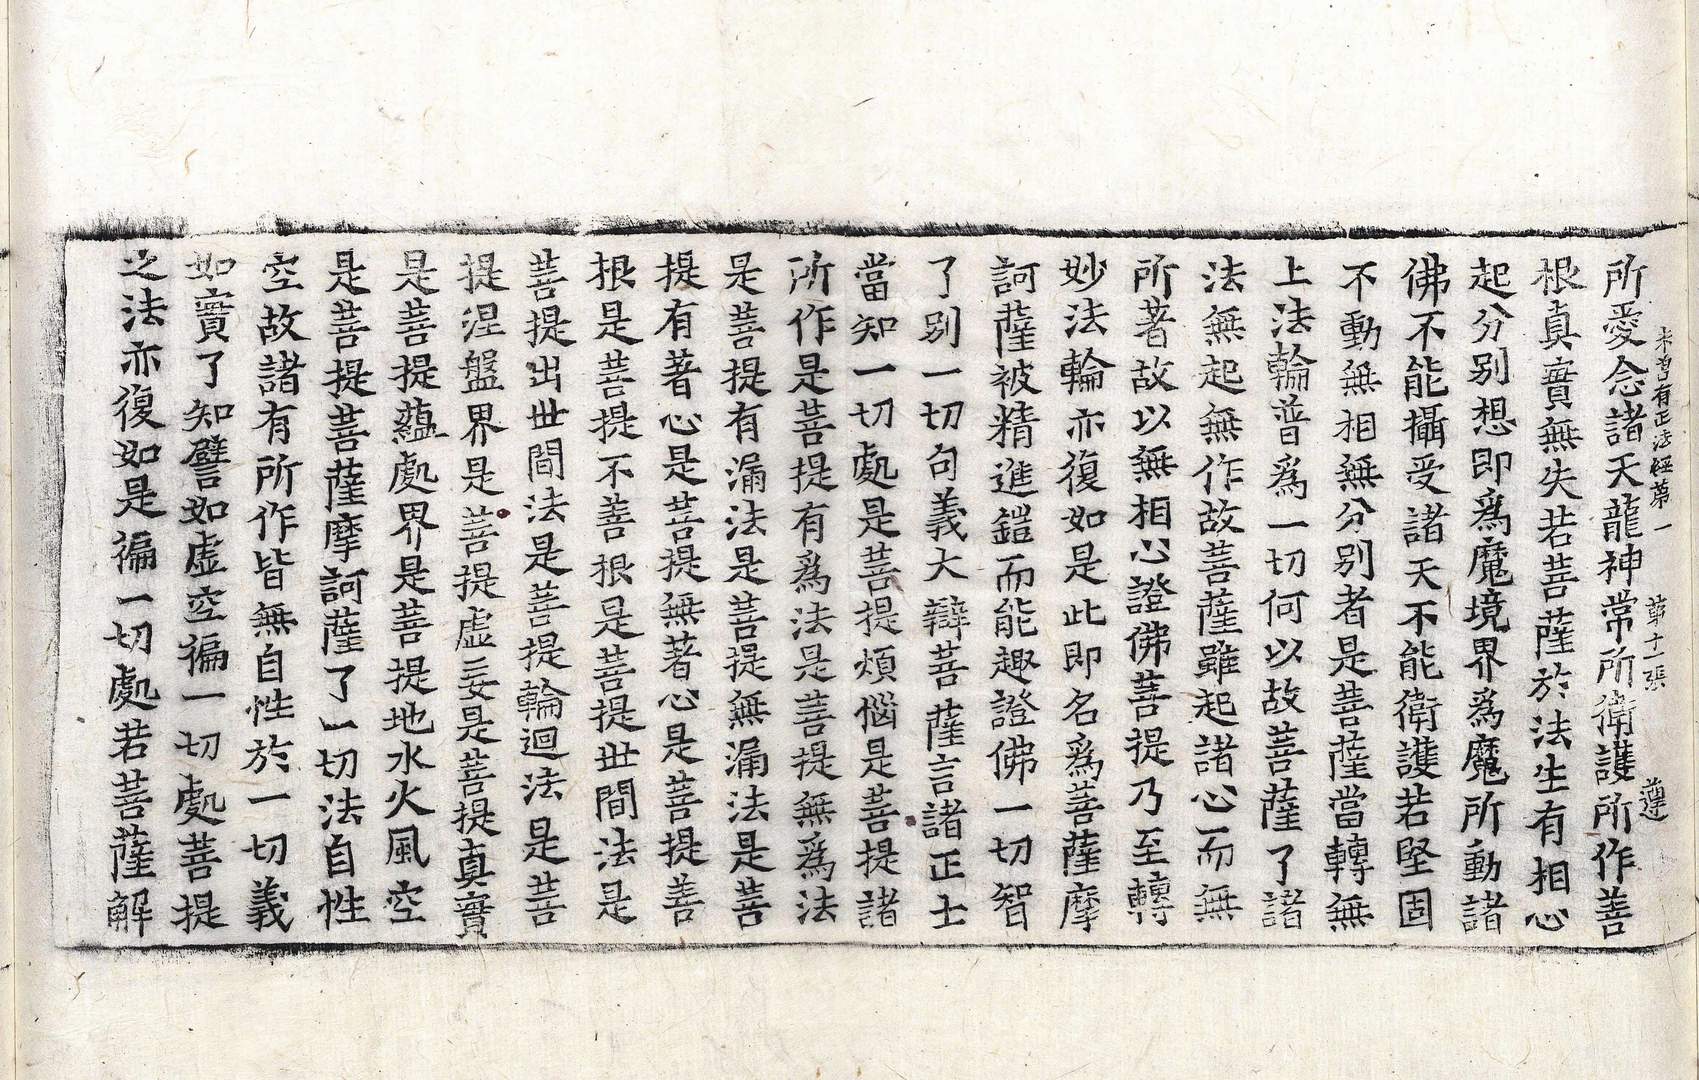 未曾有正法經第一 第十二張 遵
所愛念諸天龍神常所衛護所作善
根真實無失若菩薩於法生有相心
起分別想即為魔境界為魔所動諸
佛不能攝受諸天不能衛護若堅固
不動無相無分別者是菩薩當轉無
上法輪普為一切何以故菩薩了諸
法無起無作故菩薩雖起諸心而無
所著故以無相心證佛菩提乃至轉
妙法輪亦復如是此即名為菩薩摩
訶薩被精進鎧而能趣證佛一切智
了別一切句義大辯菩薩言諸正士
當知一切處是菩提煩惱是菩提諸
所作是菩提有為法是菩提無為法
是菩提有漏法是菩提無漏法是菩
提有著心是菩提無著心是菩提善
根是菩提不善根是菩提世間法是
菩提出世間法是菩提輪迴法是菩
提涅盤界是菩提虛妄是菩提真實
是菩提蘊處界是菩提地水火風空
是菩提菩薩摩訶薩了一切法自性
空故諸有所作皆無自性於一切義
如實了知譬如虛空徧一切處菩提
之法亦復如是徧一切處若菩薩解